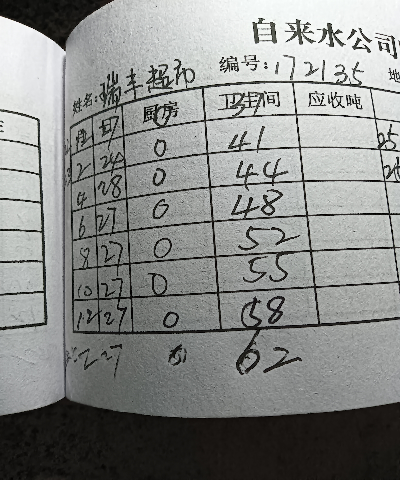 自来水公司
姓名:瑞丰超市 编号:172135 地
厨房 卫生间 应收吨
2 24 0 41 25
4 28 0 44
6 27 0 48
8 27 0 52
10 27 0 55
12 27 0 58
2 27 0 62